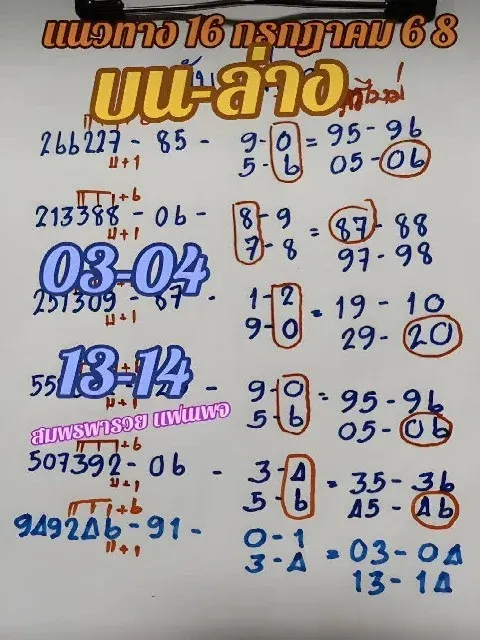 แนวทาง 16 กรกฎาคม 68
บน-ล่าง
266227 - 85 - 9-0 = 95 - 96
+1 5-6 05 - 06
+6
213388 - 06 - 8-9 = 87 - 88
+1 7-8 97 - 98
03-04
251309 - 87 - 1-2 = 19 - 10
+1 9-0 29 - 20
13-14
55 - 9-0 = 95 - 96
+1 5-6 05 - 06
สมพรพารวย แฟนเพจ
+6
507392 - 06 - 3-4 = 35 - 36
+1 5-6 45 - 46
+6
949246 - 91 - 0-1 = 03 - 04
+1 3-4 13 - 14